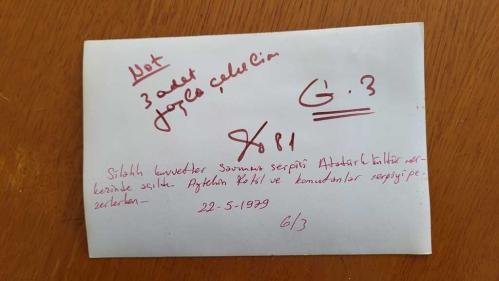 Not
3 adet
G.3
% 81
Silahlı kuvvetler Savunma sergisi Atatürk Kültür mer-
kezinde açıldı. Aytekin ve komutanlar sergiyi ge-
zerlerken-
22-5-1979
6/3